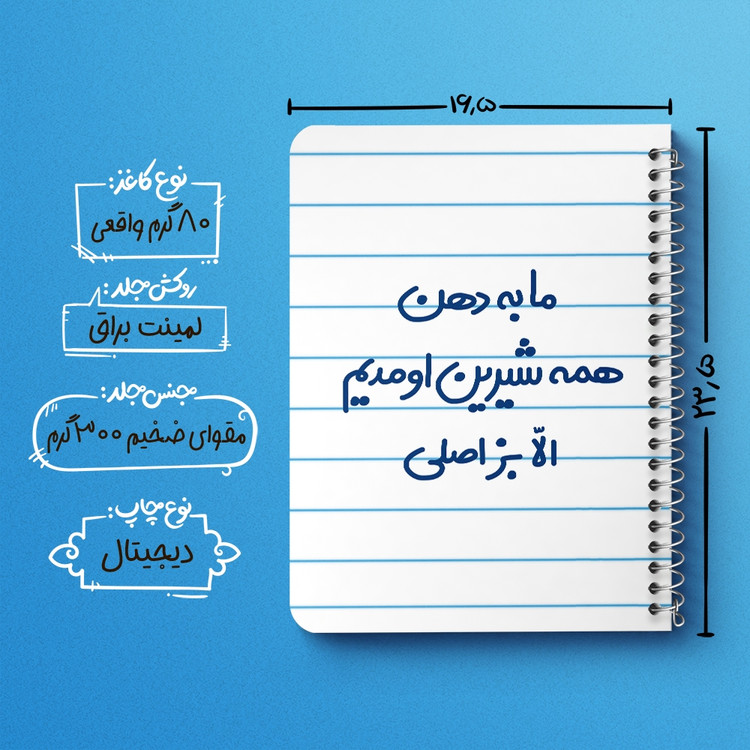 ۱۶,۵
۲۳,۵
ما به دهن
همه شیرین اومدیم
الّا بز اصلی
نوع کاغذ:
۸۰ گرم واقعی
روکش جلد:
لمینت براق
جنس جلد:
مقوای ضخیم ۳۰۰ گرم
نوع چاپ:
دیجیتال